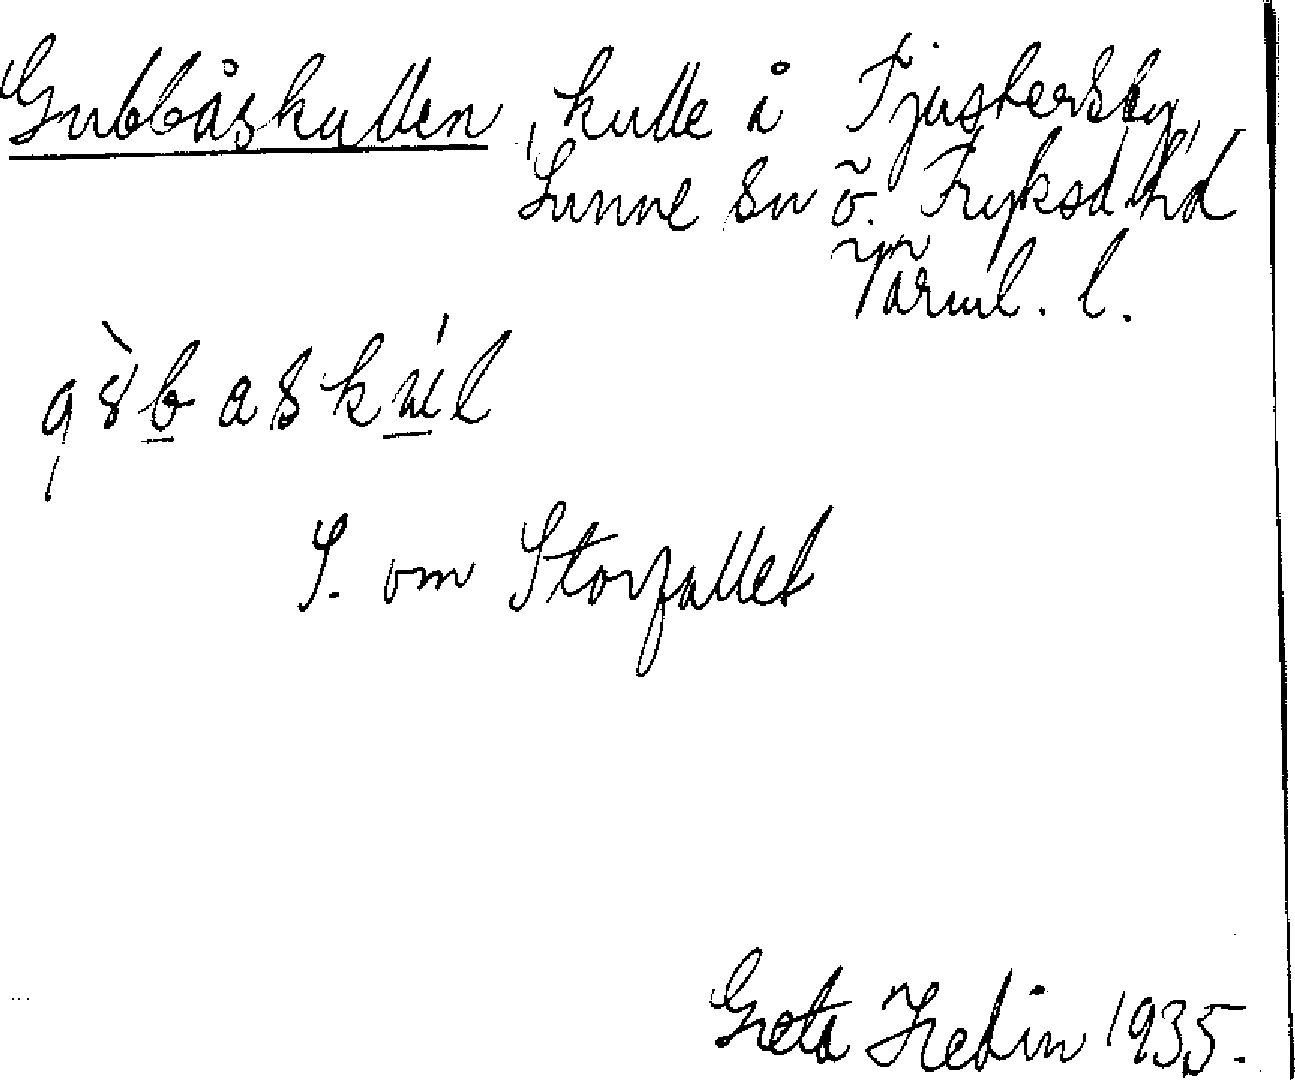 Gubbåskullen, kulle i Fjusbersby,
Sunne sn ö. Fryksd. hd
Värml. l.
S. om Storfallet
Greta Hedin 1935.